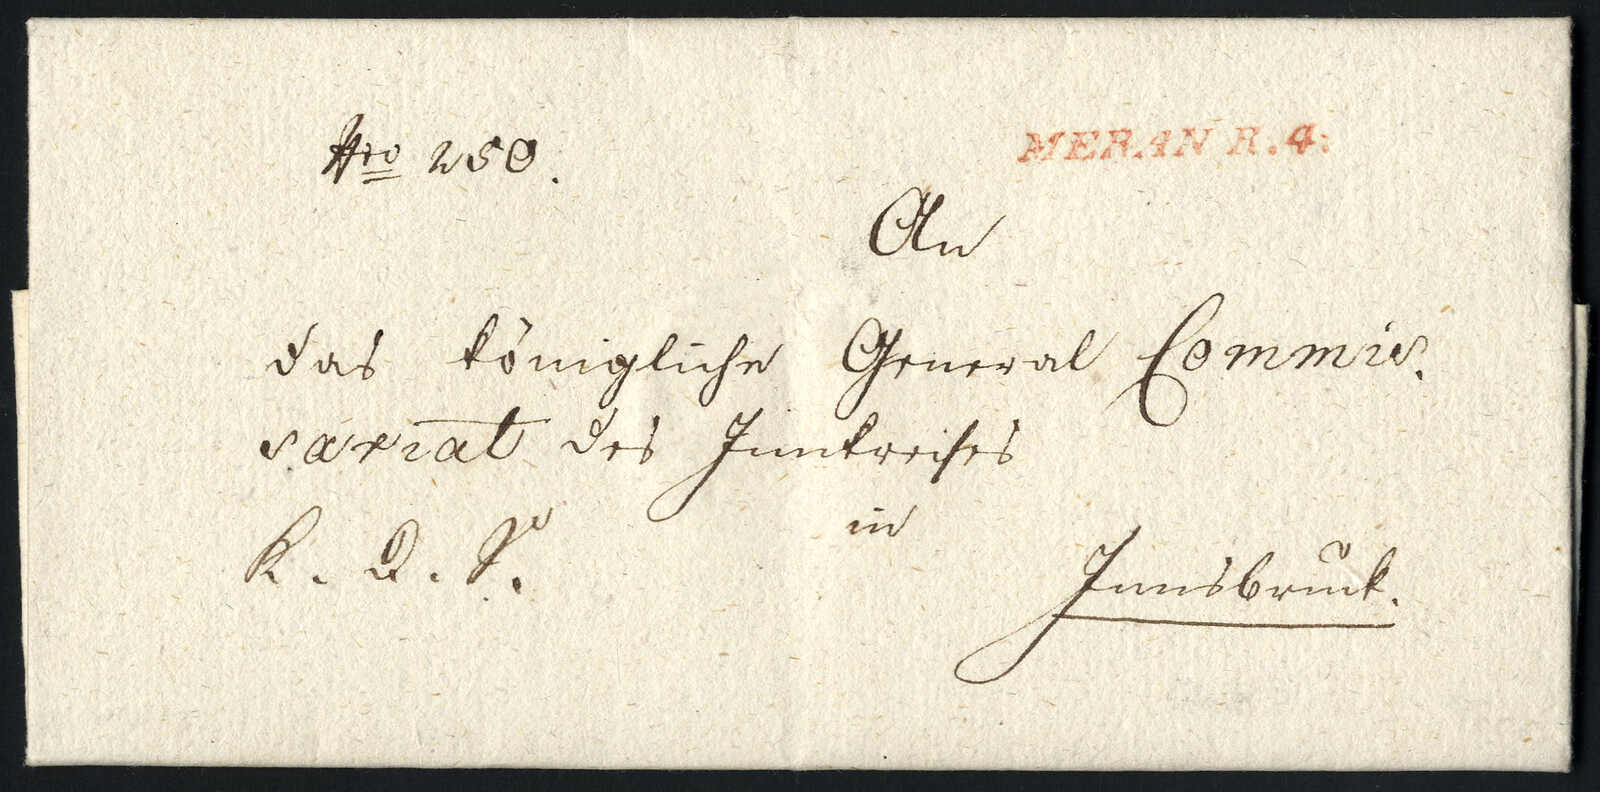 Nro 250.
MERAN R.4.
An
das königliche General Commis.
sariat des Innkreises
in
K. D. S.
Innsbruck.